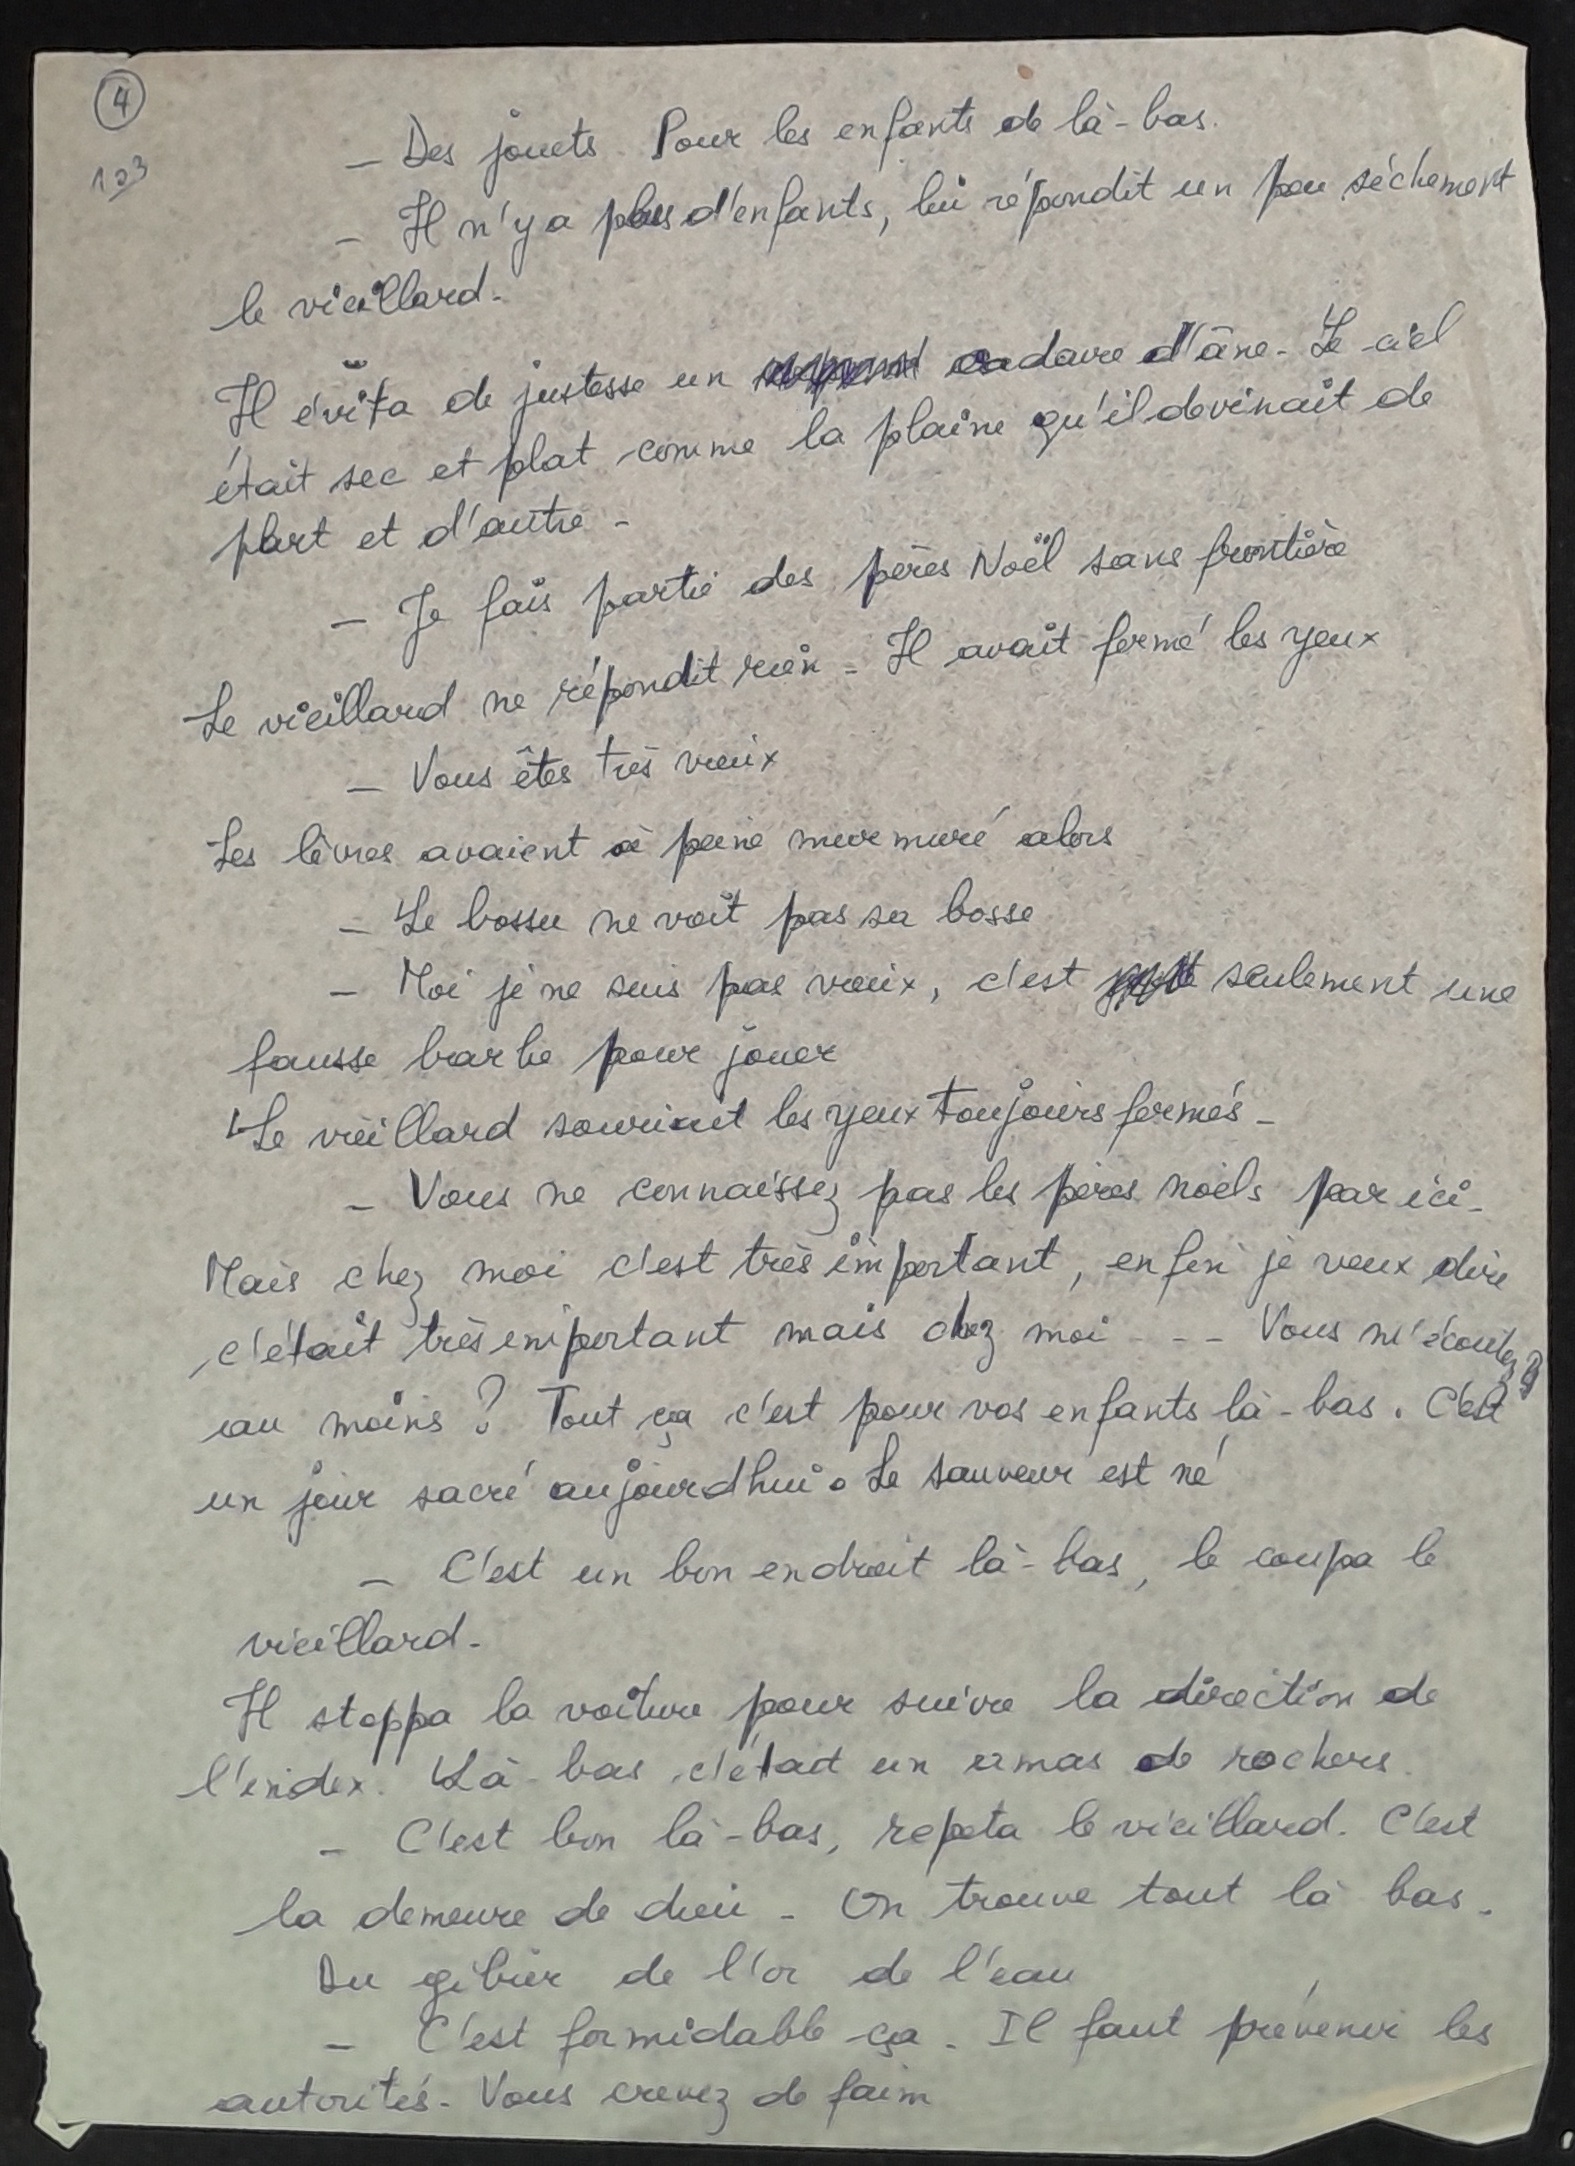 4
123
— Des jouets. Pour les enfants de là-bas.
— Il n'y a plus d'enfants, lui répondit un peu séchement
le vieillard.
Il évita de justesse un cadavre d'âne. Le ciel
était sec et plat comme la plaine qu'il devinait de
part et d'autre.
— Je fais partie des pères Noël sans frontière
Le vieillard ne répondit rien. Il avait fermé les yeux
— Vous êtes très vieux
Les lèvres avaient à peine murmuré alors
— Le bossu ne voit pas sa bosse
— Moi je ne suis pas vieux, c'est seulement une
fausse barbe pour jouer
Le vieillard souriait les yeux toujours fermés.
— Vous ne connaissez pas les pères noëls par ici.
Mais chez moi c'est très important, enfin je veux dire
c'était très important mais chez moi - - - Vous m'écoutez
au moins ? Tout ça c'est pour vos enfants là-bas. C'est
un jour sacré aujourd'hui. Le sauveur est né
— C'est un bon endroit là-bas, le coupa le
vieillard.
Il stoppa la voiture pour suivre la direction de
l'index. Là-bas c'était un amas de rochers.
— C'est bon là-bas, repeta le vieillard. C'est
la demeure de dieu. On trouve tout là bas.
Du gibier de l'or de l'eau
— C'est formidable ça. Il faut prévenir les
autorités. Vous crevez de faim